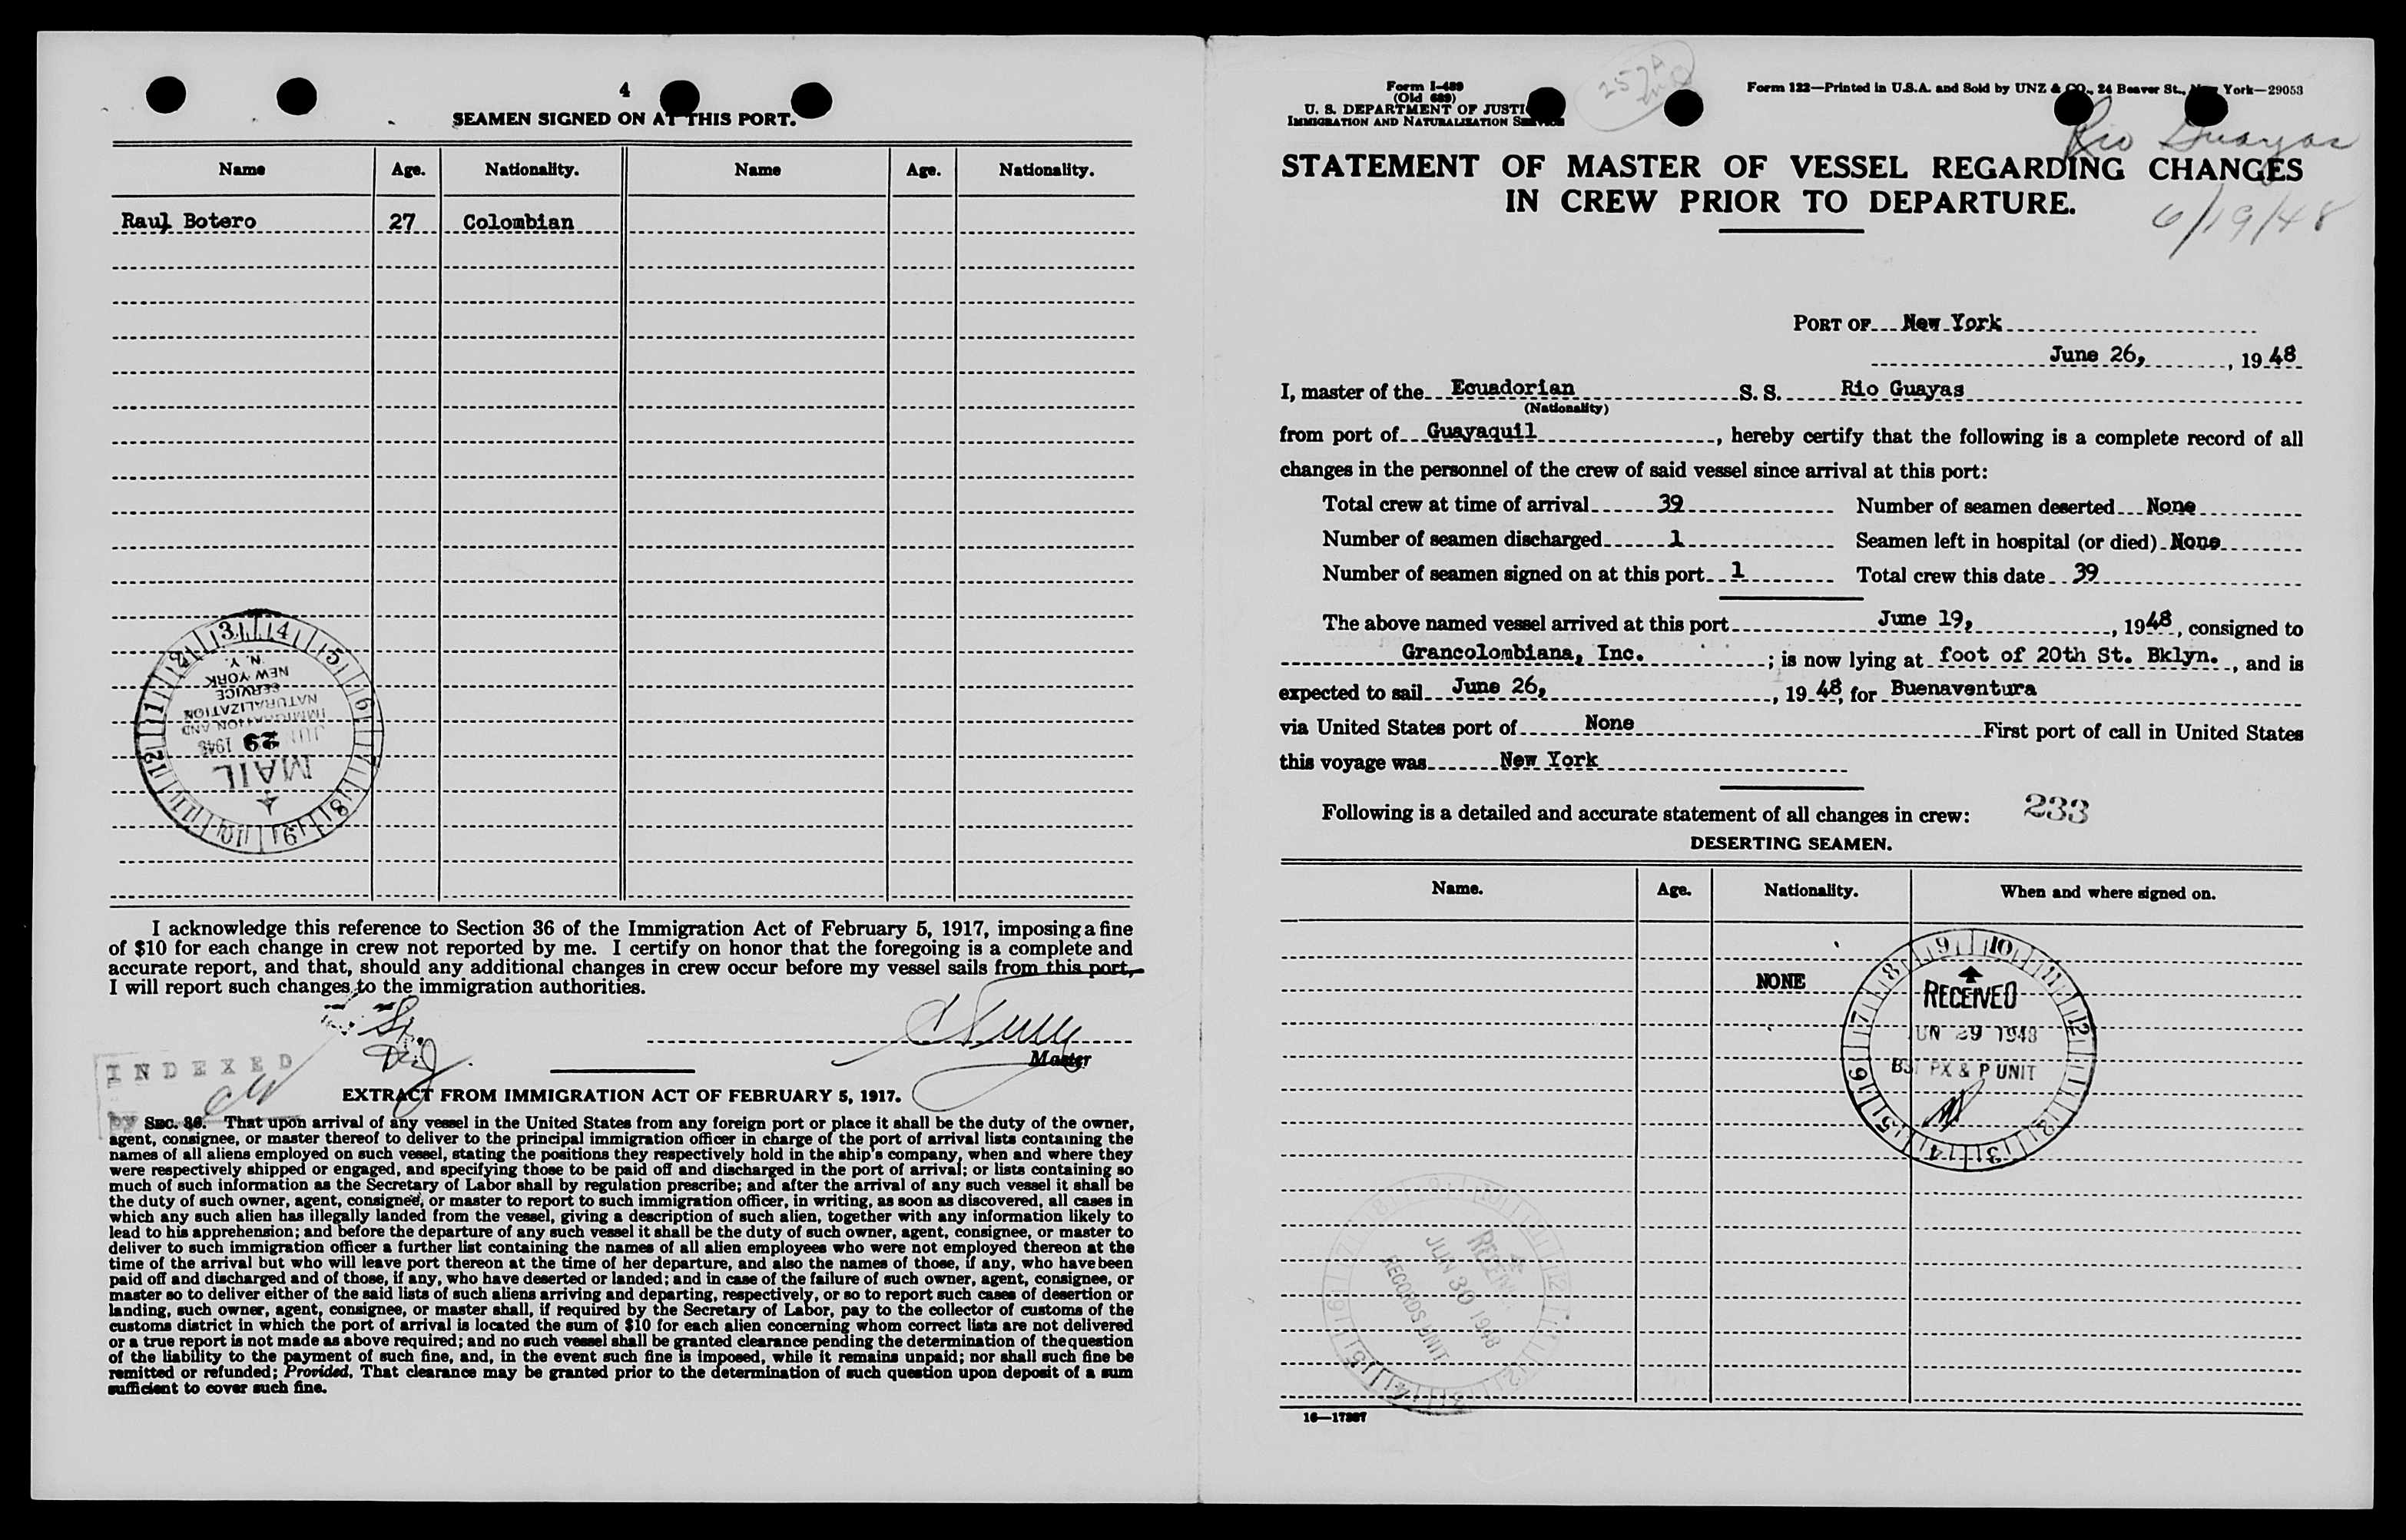 4
SEAMEN SIGNED ON AT THIS PORT.
Name Age. Nationality. Name Age. Nationality.
Raul Botero 27 Colombian
3 4 5 6 7 8 9 10 11 12 1 2
N. Y.
NEW YORK
SERVICE
NATURALIZATION
IMMIGRATION AND
JUN 29 1948
MAIL
I acknowledge this reference to Section 36 of the Immigration Act of February 5, 1917, imposing a fine
of $10 for each change in crew not reported by me. I certify on honor that the foregoing is a complete and
accurate report, and that, should any additional changes in crew occur before my vessel sails from this port,
I will report such changes to the immigration authorities.
Master
INDEXED
BY
EXTRACT FROM IMMIGRATION ACT OF FEBRUARY 5, 1917.
SEC. 36. That upon arrival of any vessel in the United States from any foreign port or place it shall be the duty of the owner,
agent, consignee, or master thereof to deliver to the principal immigration officer in charge of the port of arrival lists containing the
names of all aliens employed on such vessel, stating the positions they respectively hold in the ship's company, when and where they
were respectively shipped or engaged, and specifying those to be paid off and discharged in the port of arrival; or lists containing so
much of such information as the Secretary of Labor shall by regulation prescribe; and after the arrival of any such vessel it shall be
the duty of such owner, agent, consignee, or master to report to such immigration officer, in writing, as soon as discovered, all cases in
which any such alien has illegally landed from the vessel, giving a description of such alien, together with any information likely to
lead to his apprehension; and before the departure of any such vessel it shall be the duty of such owner, agent, consignee, or master to
deliver to such immigration officer a further list containing the names of all alien employees who were not employed thereon at the
time of the arrival but who will leave port thereon at the time of her departure, and also the names of those, if any, who have been
paid off and discharged and of those, if any, who have deserted or landed; and in case of the failure of such owner, agent, consignee, or
master so to deliver either of the said lists of such aliens arriving and departing, respectively, or so to report such cases of desertion or
landing, such owner, agent, consignee, or master shall, if required by the Secretary of Labor, pay to the collector of customs of the
customs district in which the port of arrival is located the sum of $10 for each alien concerning whom correct lists are not delivered
or a true report is not made as above required; and no such vessel shall be granted clearance pending the determination of the question
of the liability to the payment of such fine, and, in the event such fine is imposed, while it remains unpaid; nor shall such fine be
remitted or refunded; Provided, That clearance may be granted prior to the determination of such question upon deposit of a sum
sufficient to cover such fine.
Form I-489
(Old 689)
U. S. DEPARTMENT OF JUSTI
IMMIGRATION AND NATURALIZATION SERVICE
Form 122—Printed in U.S.A. and Sold by UNZ & CO., 24 Beaver St., New York—29053
Rio Guayas
STATEMENT OF MASTER OF VESSEL REGARDING CHANGES
IN CREW PRIOR TO DEPARTURE.
6/19/48
PORT OF New York
June 26, , 19 48
I, master of the Ecuadorian S. S. Rio Guayas
(Nationality)
from port of Guayaquil , hereby certify that the following is a complete record of all
changes in the personnel of the crew of said vessel since arrival at this port:
Total crew at time of arrival 39 Number of seamen deserted None
Number of seamen discharged 1 Seamen left in hospital (or died) None
Number of seamen signed on at this port 1 Total crew this date 39
The above named vessel arrived at this port June 19, , 1948, consigned to
Grancolombiana, Inc. ; is now lying at foot of 20th St. Bklyn. , and is
expected to sail June 26, , 19 48, for Buenaventura
via United States port of None First port of call in United States
this voyage was New York
Following is a detailed and accurate statement of all changes in crew: 233
DESERTING SEAMEN.
Name. Age. Nationality. When and where signed on.
NONE
9 10 11 12 1 2 3 4 5 6 7 8
RECEIVED
JUN 29 1948
PX & P UNIT
RECEIVED
JUN 30 1948
RECORDS UNIT
16—17887